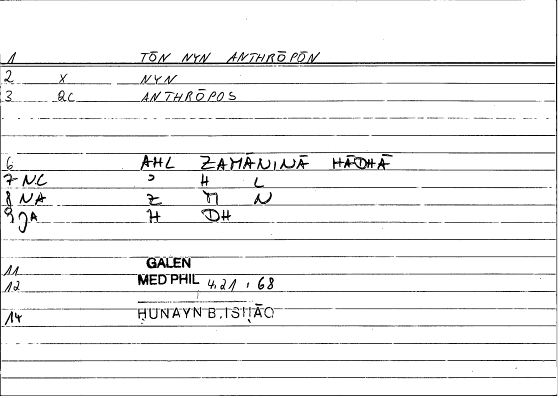 1 TŌN NYN ANTHRŌPŌN
2 X NYN
3 QC ANTHRŌPOS
6 AHL ZAMĀNINĀ HĀDHĀ
7 NC ʾ H L
8 NA Z M N
9 JA H DH
11 GALEN
12 MED PHIL 4,21 , 68
14 ḤUNAYN B. ISḤĀQ